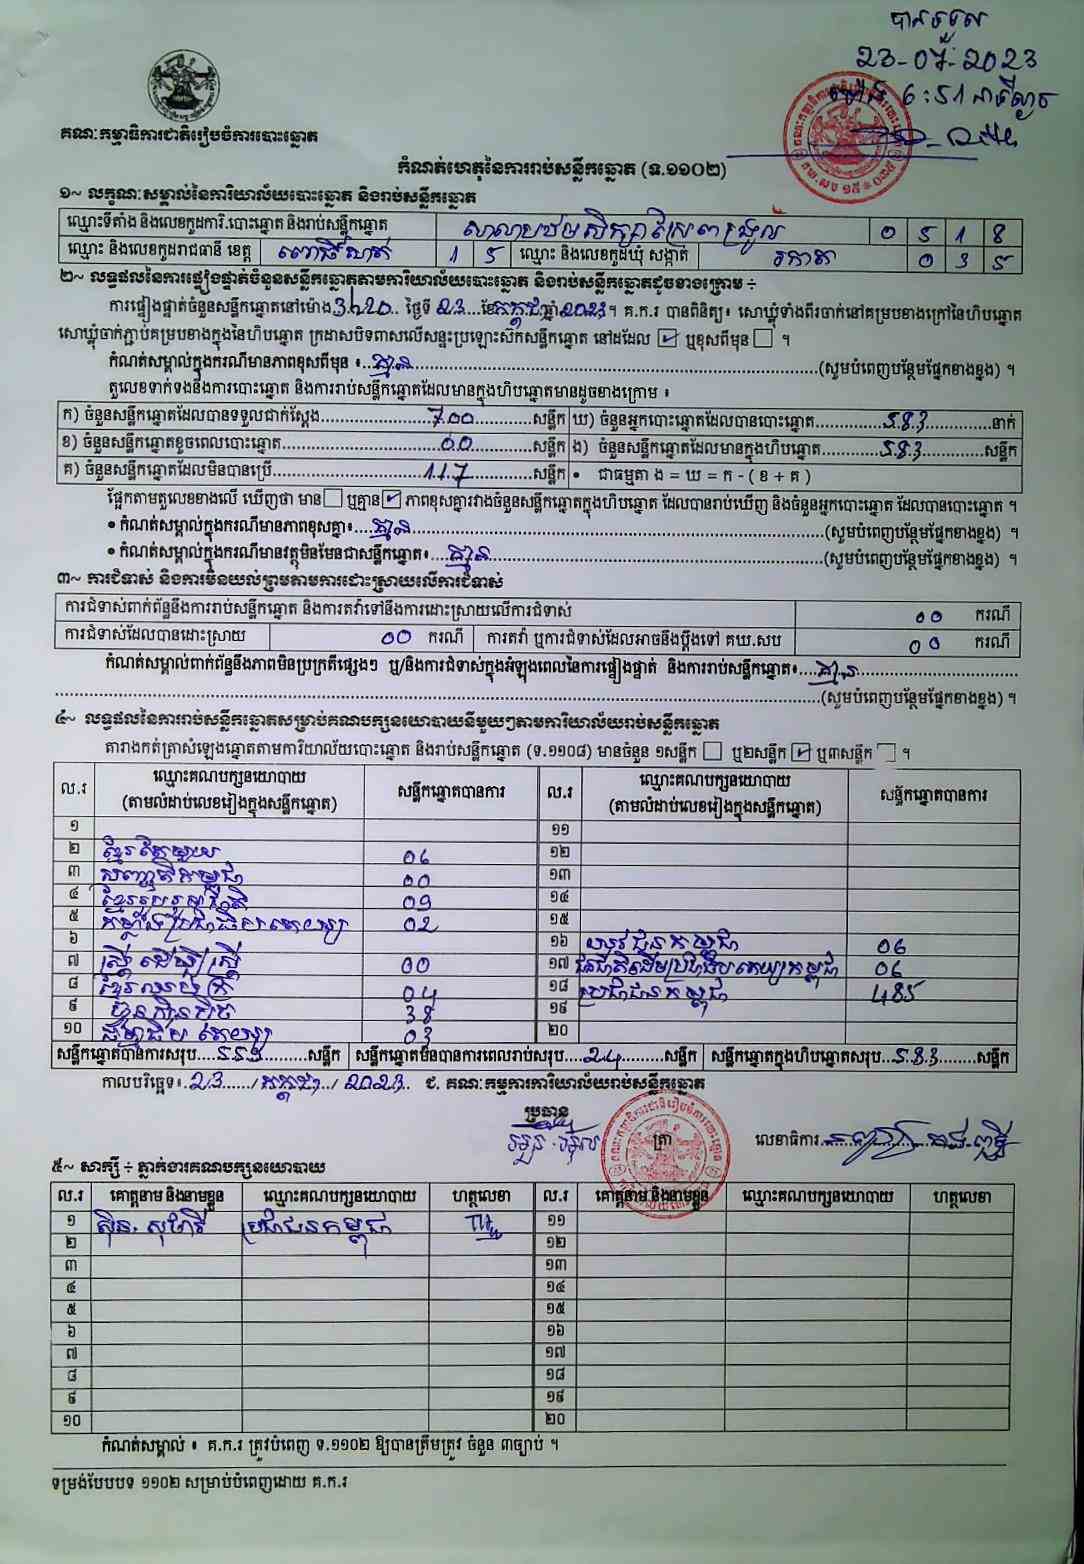 បានទទួល
23-07-2023
ម៉ោង 6:51 នាទីល្ងាច
គណៈកម្មាធិការជាតិរៀបចំការបោះឆ្នោត
កំណត់ហេតុនៃការរាប់សន្លឹកឆ្នោត (ទ.១១០២)
១~ លក្ខណៈសម្គាល់នៃការិយាល័យបោះឆ្នោត និងរាប់សន្លឹកឆ្នោត
ឈ្មោះទីតាំង និងលេខកូដការិ.បោះឆ្នោត និងរាប់សន្លឹកឆ្នោត សាលាបឋមសិក្សា 0 5 1 8
ឈ្មោះ និងលេខកូដរាជធានី ខេត្ត ពោធិ៍សាត់ 1 5 ឈ្មោះ និងលេខកូដឃុំ សង្កាត់ រកាត 0 3 5
២~ លទ្ធផលនៃការផ្ទៀងផ្ទាត់ចំនួនសន្លឹកឆ្នោតតាមការិយាល័យបោះឆ្នោត និងរាប់សន្លឹកឆ្នោតដូចខាងក្រោម ÷
ការផ្ទៀងផ្ទាត់ចំនួនសន្លឹកឆ្នោតនៅម៉ោង 3:20 ថ្ងៃទី 23 ខែ កក្កដា ឆ្នាំ 2023 ។ គ.ក.រ បានពិនិត្យ៖ សោឃ្លុំទាំងពីរចាក់នៅគម្របខាងក្រៅនៃហិបឆ្នោត
សោឃ្លុំចាក់ភ្ជាប់គម្របខាងក្នុងនៃហិបឆ្នោត ក្រដាសបិទពាសលើសន្ទះប្រឡោះស៊កសន្លឹកឆ្នោត នៅដដែល ☑ ឬខុសពីមុន ☐ ។
កំណត់សម្គាល់ក្នុងករណីមានភាពខុសពីមុន ៖ គ្មាន (សូមបំពេញបន្ថែមផ្នែកខាងខ្នង) ។
តួលេខទាក់ទងនឹងការបោះឆ្នោត និងការរាប់សន្លឹកឆ្នោតដែលមានក្នុងហិបឆ្នោតមានដូចខាងក្រោម ៖
ក) ចំនួនសន្លឹកឆ្នោតដែលបានទទួលជាក់ស្តែង 700 សន្លឹក ឃ) ចំនួនអ្នកបោះឆ្នោតដែលបានបោះឆ្នោត 583 នាក់
ខ) ចំនួនសន្លឹកឆ្នោតខូចពេលបោះឆ្នោត 00 សន្លឹក ង) ចំនួនសន្លឹកឆ្នោតដែលមានក្នុងហិបឆ្នោត 583 សន្លឹក
គ) ចំនួនសន្លឹកឆ្នោតដែលមិនបានប្រើ 117 សន្លឹក • ជាធម្មតា ង = ឃ = ក - ( ខ + គ )
ផ្អែកតាមតួលេខខាងលើ ឃើញថា មាន ☐ ឬគ្មាន ☑ ភាពខុសគ្នារវាងចំនួនសន្លឹកឆ្នោតក្នុងហិបឆ្នោត ដែលបានរាប់ឃើញ និងចំនួនអ្នកបោះឆ្នោត ដែលបានបោះឆ្នោត ។
• កំណត់សម្គាល់ក្នុងករណីមានភាពខុសគ្នា៖ គ្មាន (សូមបំពេញបន្ថែមផ្នែកខាងខ្នង) ។
• កំណត់សម្គាល់ក្នុងករណីមានវត្ថុមិនមែនជាសន្លឹកឆ្នោត៖ គ្មាន (សូមបំពេញបន្ថែមផ្នែកខាងខ្នង) ។
៣~ ការជំទាស់ និងការមិនយល់ព្រមតាមការដោះស្រាយលើការជំទាស់
ការជំទាស់ពាក់ព័ន្ធនឹងការរាប់សន្លឹកឆ្នោត និងការតវ៉ាទៅនឹងការដោះស្រាយលើការជំទាស់ 00 ករណី
ការជំទាស់ដែលបានដោះស្រាយ 00 ករណី ការតវ៉ា ឬការជំទាស់ដែលអាចនឹងប្តឹងទៅ គឃ.សប 00 ករណី
កំណត់សម្គាល់ពាក់ព័ន្ធនឹងភាពមិនប្រក្រតីផ្សេងៗ ឬ/និងការជំទាស់ក្នុងអំឡុងពេលនៃការផ្ទៀងផ្ទាត់ និងការរាប់សន្លឹកឆ្នោត៖ គ្មាន
(សូមបំពេញបន្ថែមផ្នែកខាងខ្នង) ។
៤~ លទ្ធផលនៃការរាប់សន្លឹកឆ្នោតសម្រាប់គណបក្សនយោបាយនីមួយៗតាមការិយាល័យរាប់សន្លឹកឆ្នោត
តារាងកត់ត្រាសំឡេងឆ្នោតតាមការិយាល័យបោះឆ្នោត និងរាប់សន្លឹកឆ្នោត (ទ.១១០៨) មានចំនួន ១សន្លឹក ☐ ឬ២សន្លឹក ☑ ឬ៣សន្លឹក ☐ ។
ល.រ ឈ្មោះគណបក្សនយោបាយ (តាមលំដាប់លេខរៀងក្នុងសន្លឹកឆ្នោត) សន្លឹកឆ្នោតបានការ ល.រ ឈ្មោះគណបក្សនយោបាយ (តាមលំដាប់លេខរៀងក្នុងសន្លឹកឆ្នោត) សន្លឹកឆ្នោតបានការ
១ ១១
២ ខ្មែរតែមួយ 06 ១២
៣ សញ្ជាតិកម្ពុជា 00 ១៣
៤ ខ្មែររួបរួមជាតិ 09 ១៤
៥ កម្លាំងប្រជាធិបតេយ្យ 02 ១៥
៦ ១៦ យុវជនកម្ពុជា 06
៧ ស្ត្រីដើម្បីស្ត្រី 00 ១៧ ជនជាតិដើមប្រជាធិបតេយ្យកម្ពុជា 06
៨ ខ្មែរឈប់ក្រ 04 ១៨ ប្រជាជនកម្ពុជា 485
៩ ហ៊្វុនស៊ិនប៉ិច 38 ១៩
១០ ធម្មាធិបតេយ្យ 03 ២០
សន្លឹកឆ្នោតបានការសរុប 559 សន្លឹក សន្លឹកឆ្នោតមិនបានការពេលរាប់សរុប 24 សន្លឹក សន្លឹកឆ្នោតក្នុងហិបឆ្នោតសរុប 583 សន្លឹក
កាលបរិច្ឆេទ៖ 23 / កក្កដា / 2023 ជ. គណៈកម្មការការិយាល័យរាប់សន្លឹកឆ្នោត
ប្រធាន
ត្រា លេខាធិការ
៥~ សាក្សី ÷ ភ្នាក់ងារគណបក្សនយោបាយ
ល.រ គោត្តនាម និងនាមខ្លួន ឈ្មោះគណបក្សនយោបាយ ហត្ថលេខា ល.រ គោត្តនាម និងនាមខ្លួន ឈ្មោះគណបក្សនយោបាយ ហត្ថលេខា
១ ស៊ិន សុផារី ប្រជាជនកម្ពុជា ១១
២ ១២
៣ ១៣
៤ ១៤
៥ ១៥
៦ ១៦
៧ ១៧
៨ ១៨
៩ ១៩
១០ ២០
កំណត់សម្គាល់ ៖ គ.ក.រ ត្រូវបំពេញ ទ.១១០២ ឱ្យបានត្រឹមត្រូវ ចំនួន ៣ច្បាប់ ។
ទម្រង់បែបបទ ១១០២ សម្រាប់បំពេញដោយ គ.ក.រ